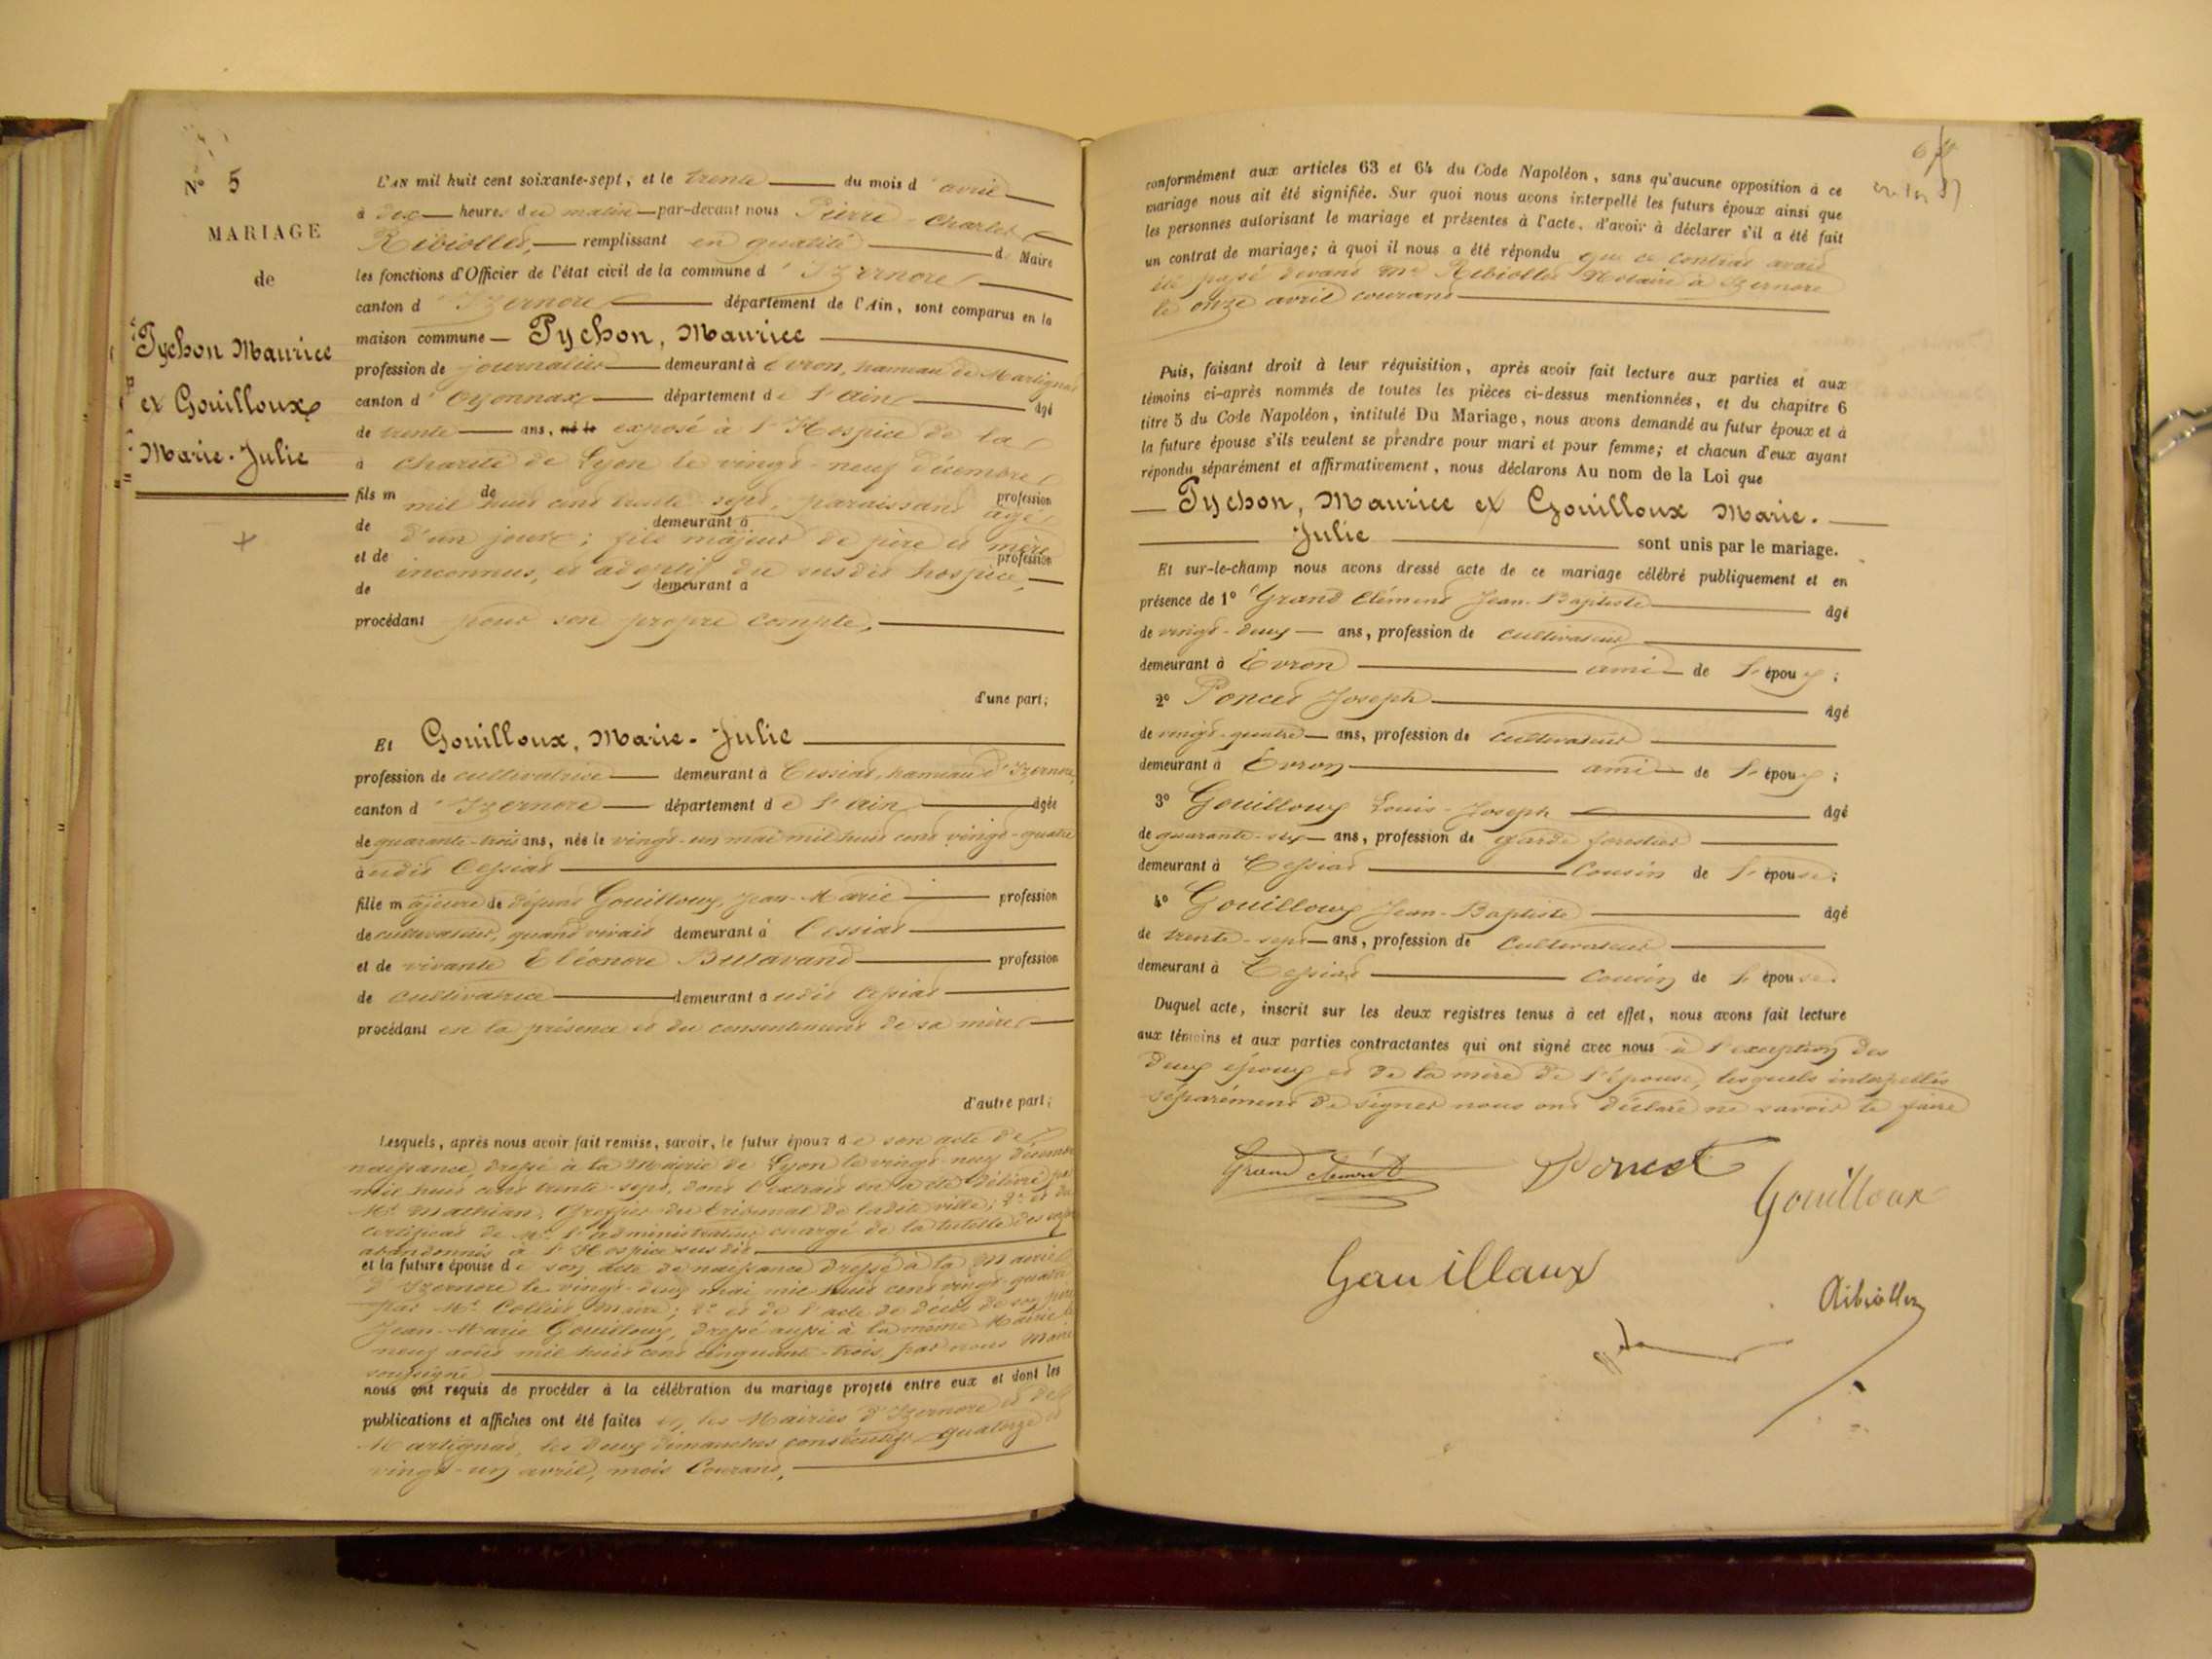 N° 5
MARIAGE
de
Tychon Maurice
et Gouilloux
Marie-Julie
L'AN mil huit cent soixante-sept, et le trente du mois d'avril
à dix heures du matin par-devant nous Pierre-Charles
Ribiollet, remplissant en qualité de Maire
les fonctions d'Officier de l'état civil de la commune d'Izernore
canton d'Izernore département de l'Ain, sont comparus en la
maison commune Tychon, Maurice
profession de journalier demeurant à Evron, hameau de Martignat
canton d'Oyonnax département de l'Ain âgé
de trente ans, né le exposé à l'Hospice de la
à charité de Lyon le vingt-neuf décembre
fils m de mil huit cent trente-sept, paraissant âgé profession
de d'un jour; fils majeur de père et mère demeurant à
et de inconnus, et adoptif du susdit hospice, profession
de demeurant à
procédant pour son propre compte,
d'une part;
Et Gouilloux, Marie-Julie
profession de cultivatrice demeurant à Cessiat, hameau d'Izernore,
canton d'Izernore département de l'Ain âgée
de quarante-trois ans, née le vingt-un mai mil huit cent vingt-quatre
à udit Cessiat
fille majeure de défunt Gouilloux, Jean-Marie profession
de cultivateur, quand vivait demeurant à Cessiat
et de vivante Eléonore Butavand profession
de cultivatrice demeurant audit Cessiat
procédant en la présence et du consentement de sa mère
d'autre part;
Lesquels, après nous avoir fait remise, savoir, le futur époux de son acte de
naissance, dressé à la Mairie de Lyon le vingt-neuf décembre
mil huit cent trente-sept, dont l'extrait en a été délivré par
Mr Mathian, Greffier du tribunal de ladite ville; 2° et du
certificat de Mr l'administrateur chargé de la tutelle des enfants
abandonnés à l'Hospice susdit
et la future épouse de son acte de naissance dressé à la Mairie
d'Izernore le vingt-deux mai mil huit cent vingt-quatre
par Mr Collier, Maire; 2° et de l'acte de décès de son père
Jean-Marie Gouilloux, dressé aussi à la même Mairie le
neuf août mil huit cent cinquante-trois, par nous Maire
soussigné
nous ont requis de procéder à la célébration du mariage projeté entre eux et dont les
publications et affiches ont été faites en les Mairies d'Izernore et de
Martignat, les deux dimanches consécutifs quatorze et
vingt-un avril, mois courant,
conformément aux articles 63 et 64 du Code Napoléon, sans qu'aucune opposition à ce
mariage nous ait été signifiée. Sur quoi nous avons interpellé les futurs époux ainsi que
les personnes autorisant le mariage et présentes à l'acte, d'avoir à déclarer s'il a été fait
un contrat de mariage; à quoi il nous a été répondu que ce contrat avait
été passé devant Me Ribiollet Notaire à Izernore
le onze avril courant
Puis, faisant droit à leur réquisition, après avoir fait lecture aux parties et aux
témoins ci-après nommés de toutes les pièces ci-dessus mentionnées, et du chapitre 6
titre 5 du Code Napoléon, intitulé Du Mariage, nous avons demandé au futur époux et à
la future épouse s'ils veulent se prendre pour mari et pour femme; et chacun d'eux ayant
répondu séparément et affirmativement, nous déclarons Au nom de la Loi que
Tychon, Maurice et Gouilloux Marie-
Julie sont unis par le mariage.
Et sur-le-champ nous avons dressé acte de ce mariage célébré publiquement et en
présence de 1° Grand Clément Jean-Baptiste âgé
de vingt-deux ans, profession de cultivateur
demeurant à Evron ami de l'époux;
2° Poncet Joseph âgé
de vingt-quatre ans, profession de cultivateur
demeurant à Evron ami de l'époux;
3° Gouilloux Louis-Joseph âgé
de quarante-six ans, profession de garde forestier
demeurant à Cessiat Cousin de l'épouse;
4° Gouilloux Jean-Baptiste âgé
de trente-sept ans, profession de Cultivateur
demeurant à Cessiat Cousin de l'épouse.
Duquel acte, inscrit sur les deux registres tenus à cet effet, nous avons fait lecture
aux témoins et aux parties contractantes qui ont signé avec nous à l'exception des
deux époux et de la mère de l'épouse, lesquels interpellés
séparément de signer nous ont déclaré ne savoir le faire
Grand Clément Poncet
Gouilloux
Gouilloux
Ribiollet